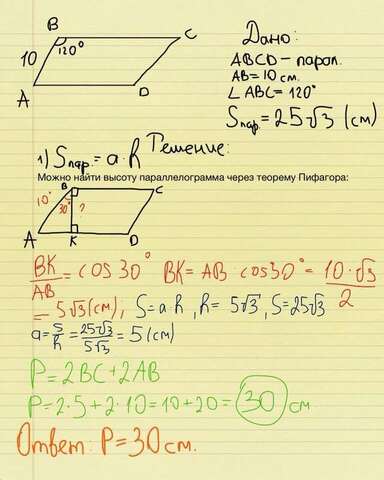 B C
10 120°
A D
Дано:
ABCD - парал.
AB = 10 см.
∠ ABC = 120°
Sпар. = 25√3 (см)
Решение:
1) Sпар. = a · h
Можно найти высоту параллелограмма через теорему Пифагора:
B C
10 30° ?
A K D
BK/AB = cos 30° BK = AB · cos 30° = 10 · √3/2
= 5√3 (см), S = a · h, h = 5√3, S = 25√3
a = S/h = 25√3/5√3 = 5 (см)
P = 2BC + 2AB
P = 2 · 5 + 2 · 10 = 10 + 20 = 30 см
Ответ: P = 30 см.